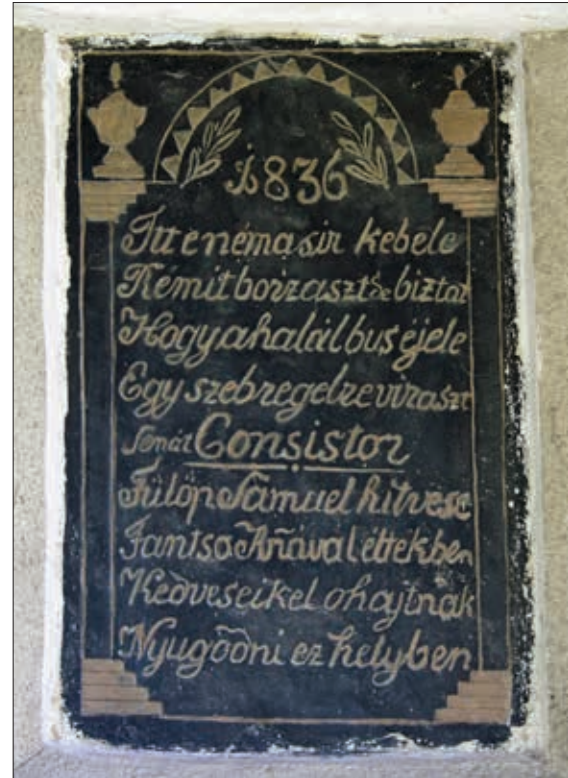 1836
Itt e néma sir kebele
Rémit borzaszt de biztat
Hogy a halál bus éjele
Egy szeb regelre viraszt
Senát Consistor
Fülöp Sámuel hitvese
Jantso Añával éltekben
Kedveseikel ohajtnak
Nyugodni ez helyben